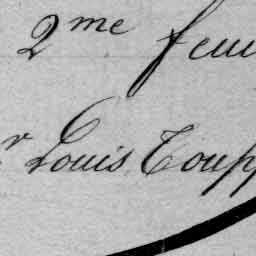 2me feui
r Louis Toupp